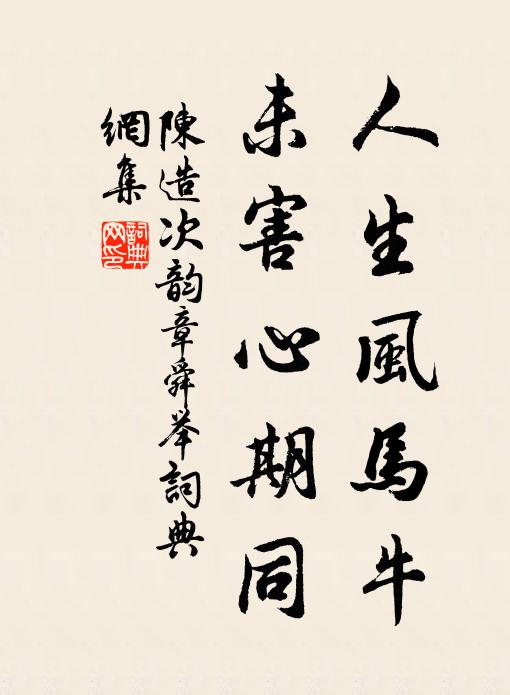 人生風馬牛
未害心期同
陳造次韵章舜举詞典
網集
詞典网印